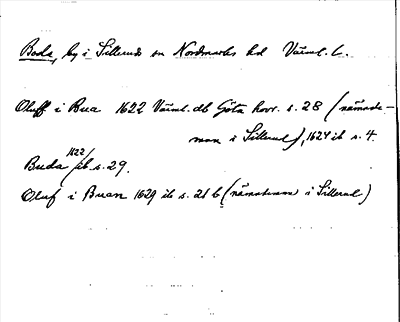 Boda, by i Sillerud sn Nordmarks hd Värml. l.
Oluff i Bua 1622 Värml. db Göta hovr. s. 28 (nämnde-
man i Sillerud), 1624 ib s. 4.
Buda 1622/ib. s. 29.
Oluf i Buan 1629 ib s. 21 b (nämndeman i Sillerud)